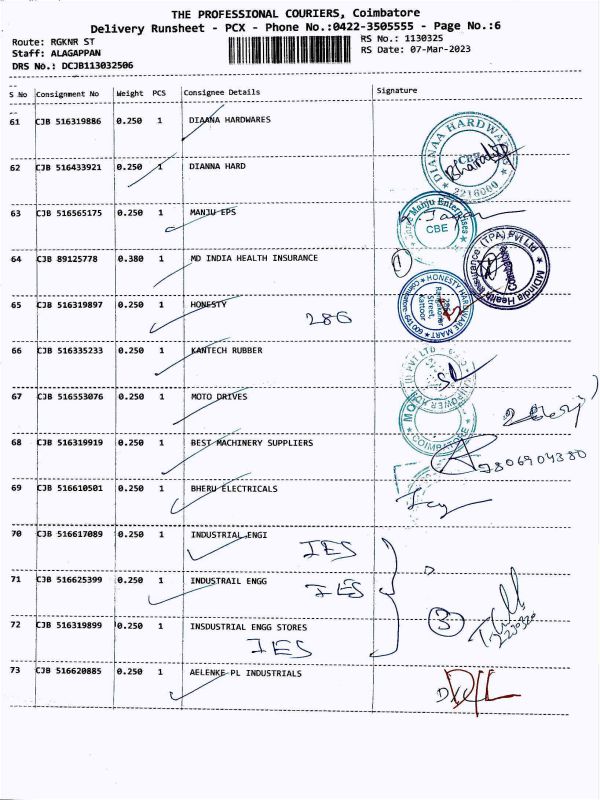 THE PROFESSIONAL COURIERS, Coimbatore
Delivery Runsheet - PCX - Phone No.:0422-3505555 - Page No.:6
Route: RGKNR ST RS No.: 1130325
Staff: ALAGAPPAN RS Date: 07-Mar-2023
DRS No.: DCJB113032506
S No Consignment No Weight PCS Consignee Details Signature
61 CJB 516319886 0.250 1 DIAANA HARDWARES
DIANAA HARDWARES CBE 2216000
62 CJB 516433921 0.250 1 DIANNA HARD
63 CJB 516565175 0.250 1 MANJU EPS
Shree Manju Enterprises CBE
64 CJB 89125778 0.380 1 MD INDIA HEALTH INSURANCE
1
MDIndia Health Insurance (TPA) Pvt Ltd
65 CJB 516319897 0.250 1 HONESTY
286
HONESTY HARDWARE MART
286 Street Kattoor
66 CJB 516335233 0.250 1 KANTECH RUBBER
67 CJB 516553076 0.250 1 MOTO DRIVES
COIMBATORE
68 CJB 516319919 0.250 1 BEST MACHINERY SUPPLIERS
7806904380
69 CJB 516610501 0.250 1 BHERU ELECTRICALS
70 CJB 516617089 0.250 1 INDUSTRIAL ENGI
IES
71 CJB 516625399 0.250 1 INDUSTRAIL ENGG
IES
72 CJB 516319899 0.250 1 INSDUSTRIAL ENGG STORES
IES
3
73 CJB 516620885 0.250 1 AELENKE PL INDUSTRIALS